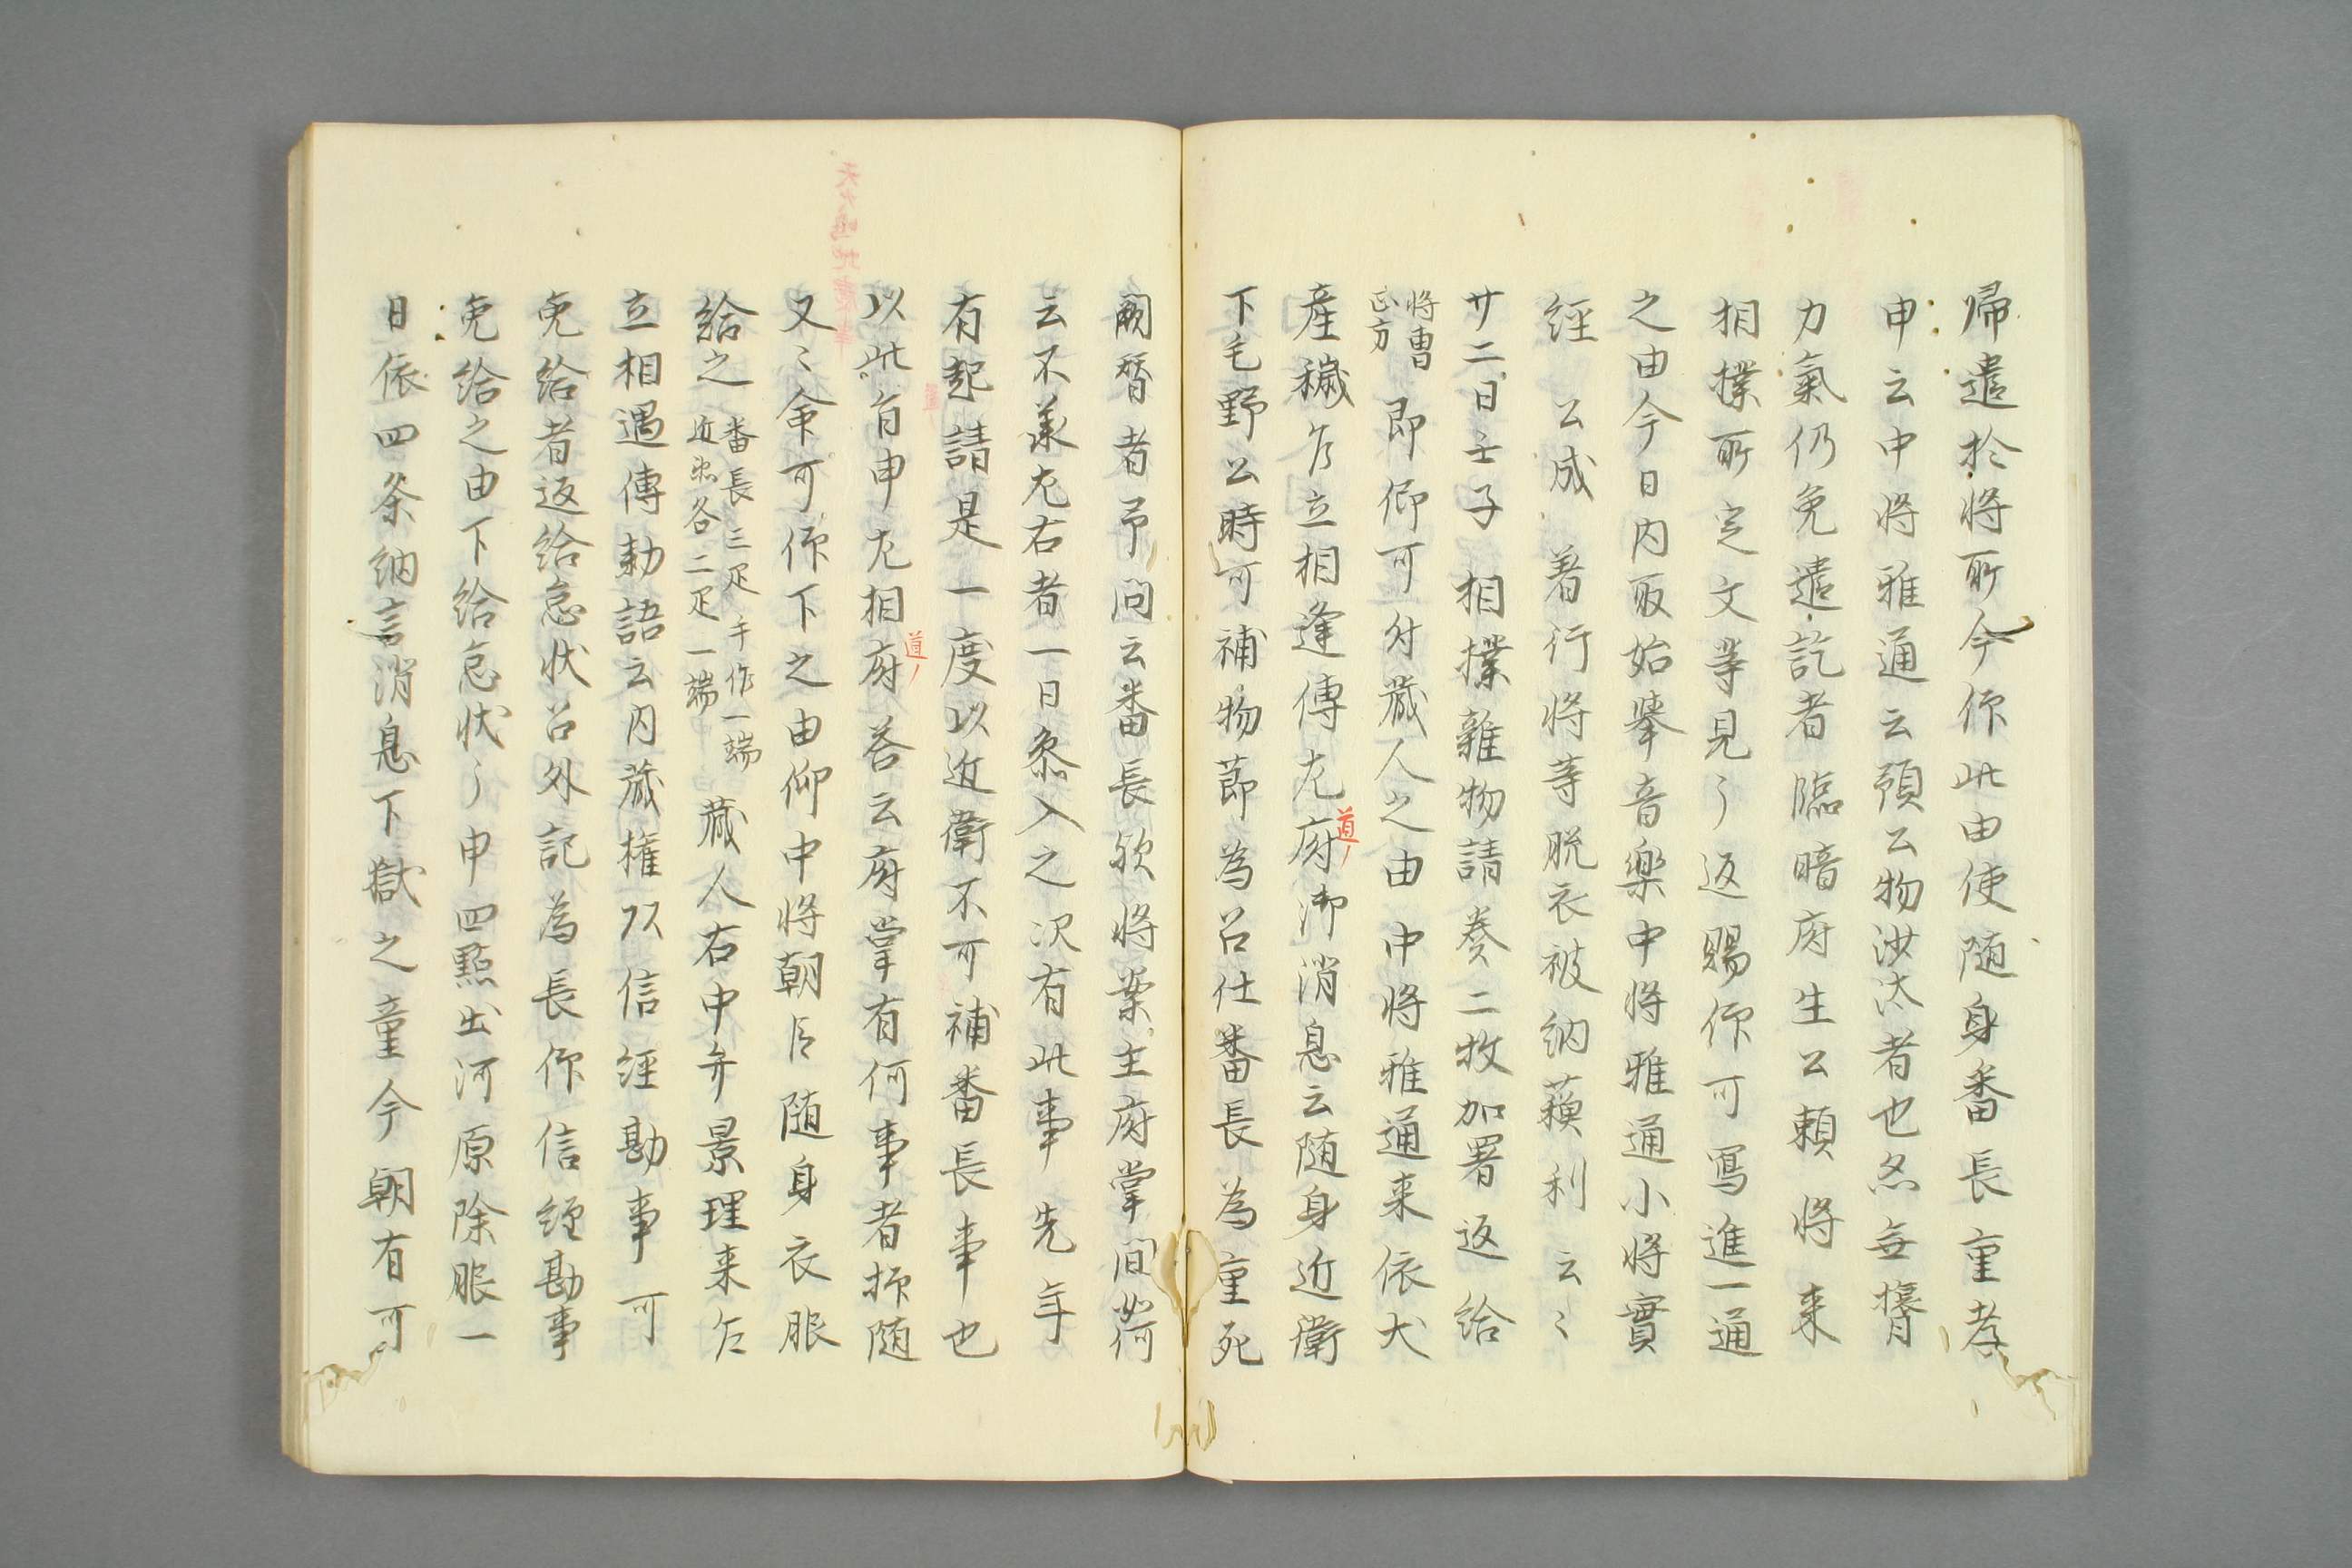 帰遣於将所今仰此由使随身番長重孝
申云中将雅通云預公物決汰者也忽無膂
力氣仍免遣訖者臨暗府生公頼将来
相撲所定文等見了返賜仰可寫進一通
之由今日内取始挙音樂中将雅通小将實
経公成著行将等脱衣被納蘓利云〻
廿二日壬子相撲雜物請奏二枚加署返給
将曹正方
即仰可付蔵人之由中将雅通来依犬
産穢乍立相逢傳左府御消息云随身近衛
道ノ
下毛野公時可補物節為召仕番長為重死
闕替者予問云番長欤将案主府掌間欤何
云不義左右者一日参入之次有此事先年
有起請是一度以近衛不可補番長事也
以此旨申左相府答云府掌有何事者抑随
道ノ
又〻命可仰下之由仰中将朝臣随身衣服
給之
番長三疋手作一端
近衛各二疋一端
蔵人右中弁景理来乍
立相遇傳勅語云内蔵権以信経勘事可
免給者返給怠状召外記為長仰信経勘事
免給之由下給怠状了申四點出河原除服一
日依四条納言消息下獄之童今朝有可